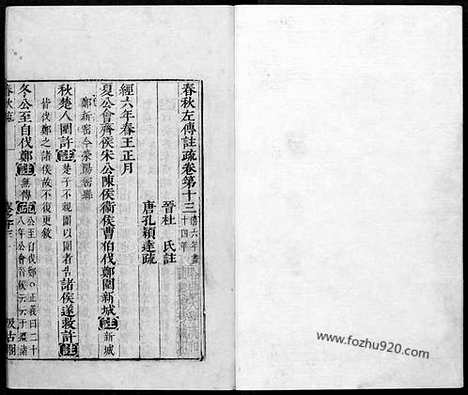 春秋左傳註疏卷第十三
晉杜氏註
唐孔穎達疏
經六年春王正月
夏公會齊侯宋公陳侯衛侯曹伯伐鄭圍新城註新城
鄭新密今滎陽密縣
秋楚人圍許註楚子不親圍以圍者告諸侯遂救許註
皆伐鄭之諸侯故不復更敘
冬公至自伐鄭註無傳
公至自伐鄭○正義曰二十
春秋疏
汲古閣
www.fozhu920.com